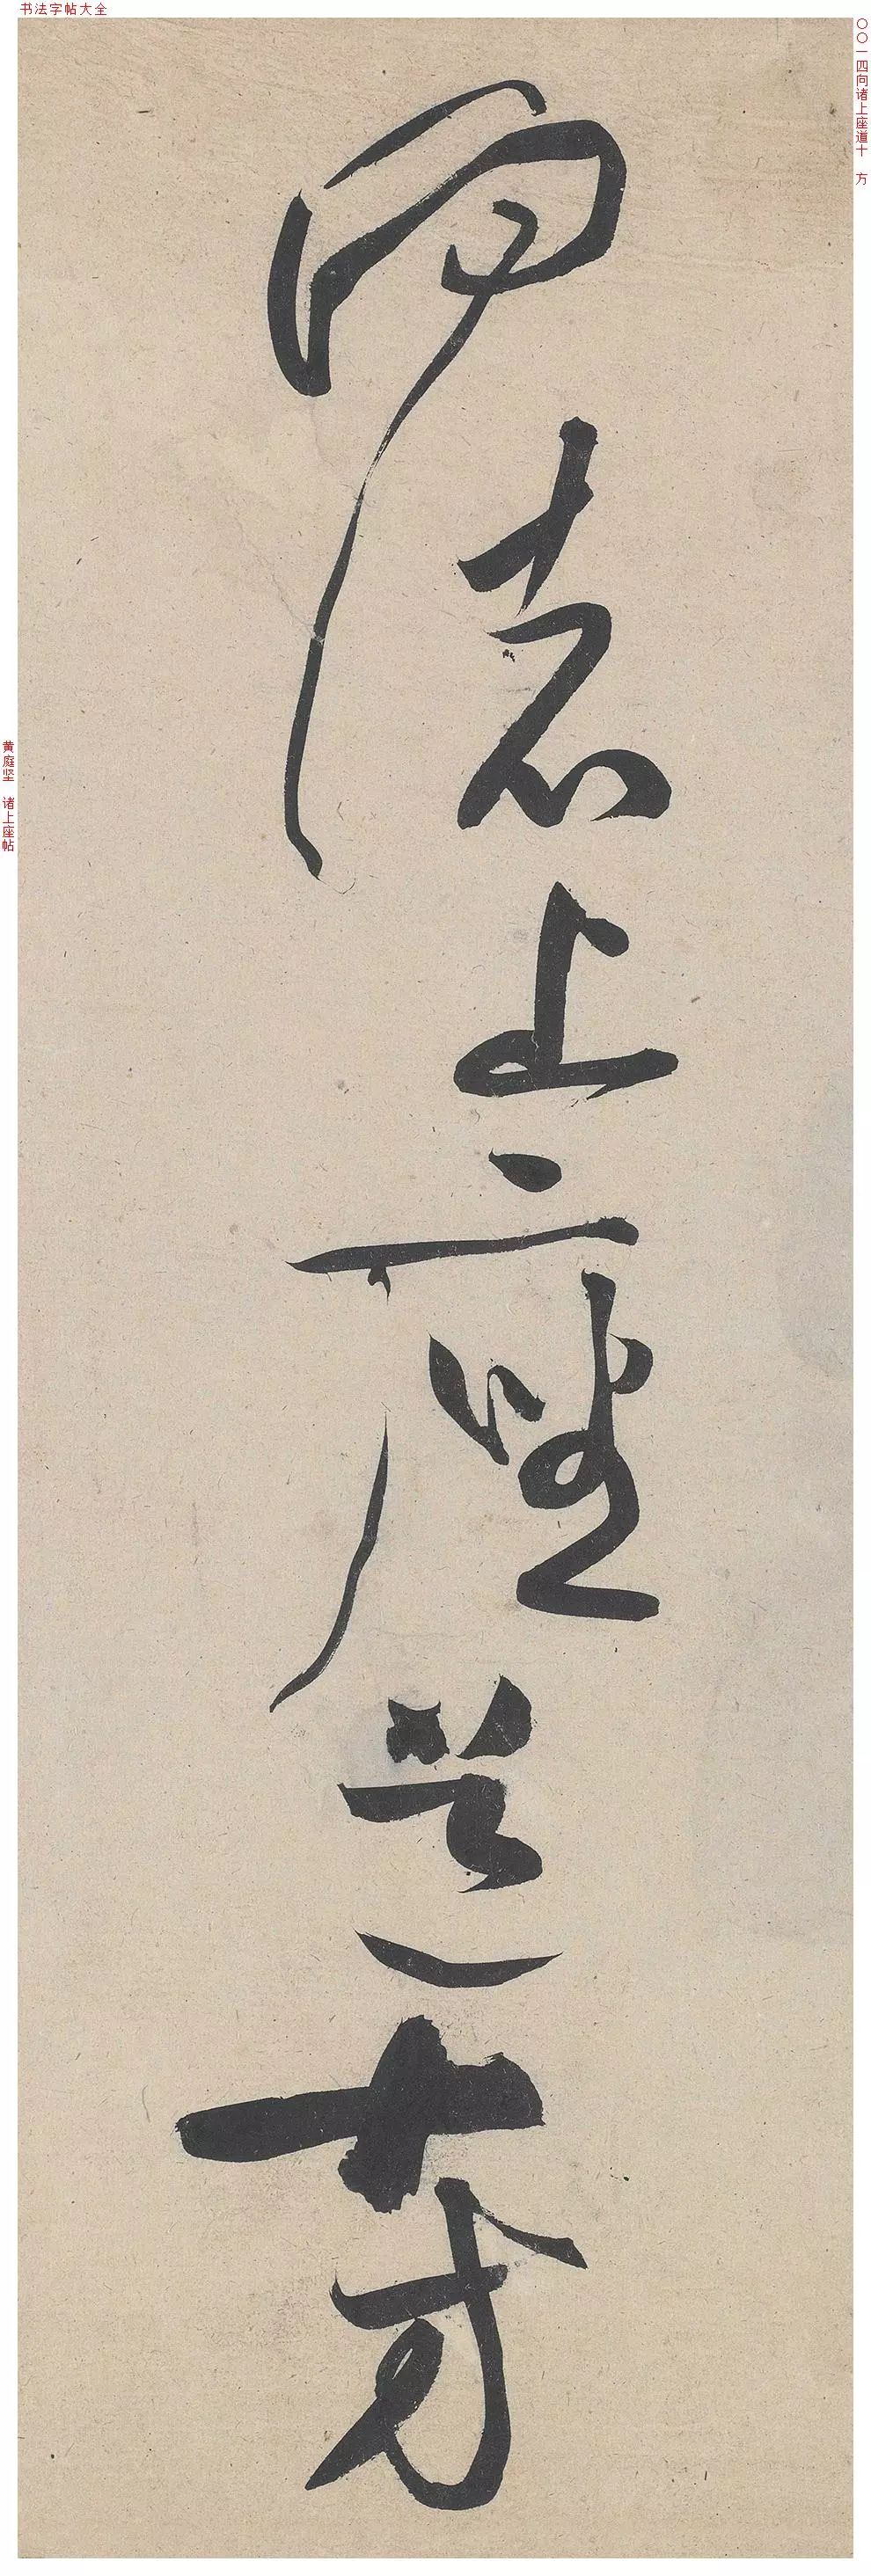 书法字帖大全
〇〇一四向诸上座道十 方
向諸上座道十方
黄庭坚 诸上座帖